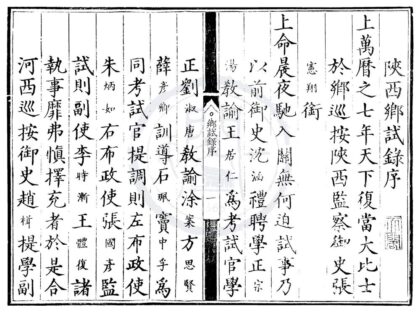 陝西鄉試錄序
上萬曆之七年天下復當大比士
於鄉巡按陝西監察御史張
憲翔銜
上命晨夜馳入關無何迫試事乃
以前御史沈涵禮聘學正宗
湯教諭王若仁為考試官學
鄉試錄序
一
正劉淑唐教諭涂案方思賢
薛彥卿訓導石珮竇中孚為
同考試官提調則左布政使
朱炳如右布政使張國彥監
試則副使李時漸王體復諸
執事靡弗慎擇充者於是合
河西巡按御史趙楫提學副